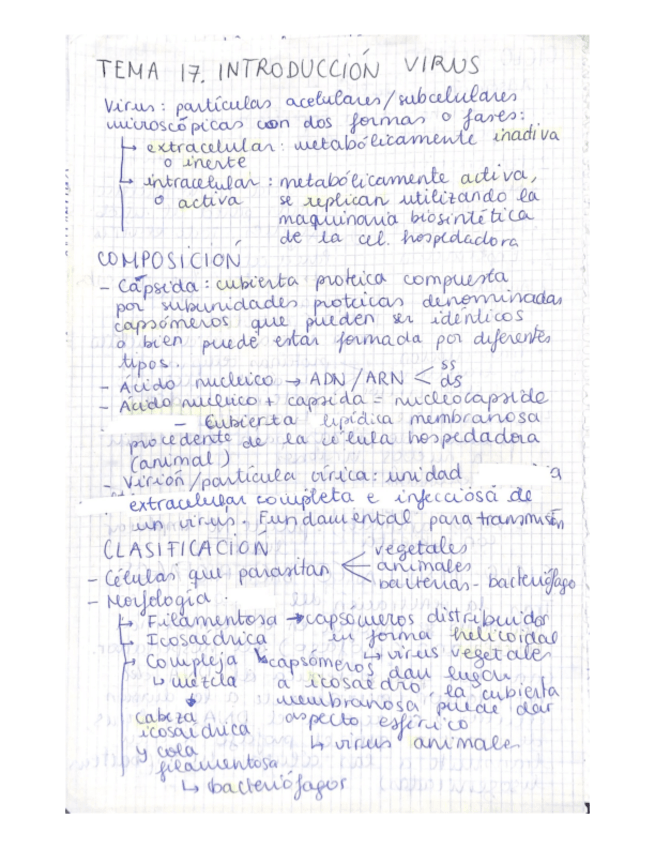 TEMA 17. INTRODUCCIÓN VIRUS
Virus: partículas acelulares/subcelulares
microscópicas con dos formas o fases:
↳ extracelular: metabólicamente inactiva
o inerte
↳ intracelular: metabólicamente activa,
o activa se replican utilizando la
maquinaria biosintética
de la cel. hospedadora
COMPOSICIÓN
- Cápsida: cubierta proteica compuesta
por subunidades proteicas denominadas
capsómeros que pueden ser idénticos
o bien puede estar formada por diferentes
tipos.
- Ácido nucleico → ADN/ARN < ss
ds
- Ácido nucleico + capsida = nucleocapside
- Cubierta lipídica membranosa
procedente de la célula hospedadora
(animal)
- Virión/partícula vírica: unidad a
extracelular completa e infecciosa de
un virus. Fundamental para transmisión
CLASIFICACIÓN
- Células que parasitan < vegetales
animales
bacterias - bacteriófago
- Morfología:
↳ Filamentosa → capsómeros distribuidor
↳ Icosaédrica en forma helicoidal
↳ virus vegetales
↳ Compleja ↳ capsómeros dan lugar
↳ mezcla a icosaedro, la cubierta
membranosa puede dar
cabeza aspecto esférico
icosaédrica ↳ virus animales
y cola
filamentosa
↳ bacteriófagos